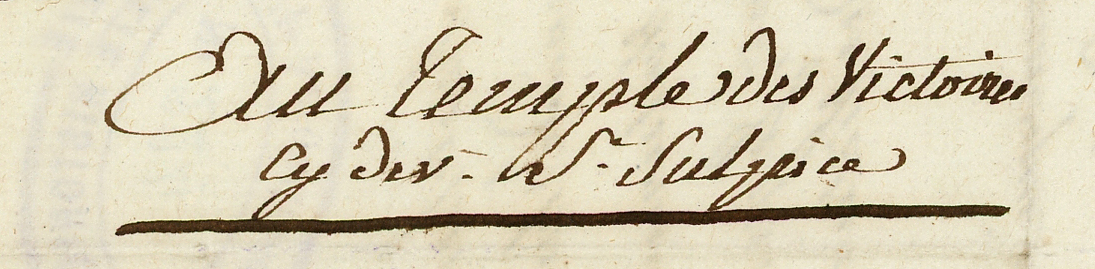 Au Temple des Victoires
cy dev. St Sulpice